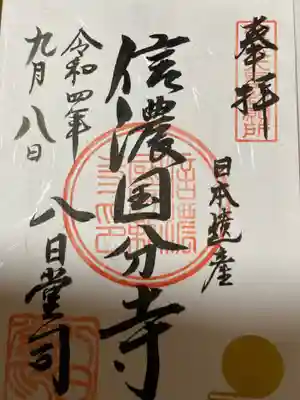 奉拝
日本遺産
信濃国分寺
八日堂司
令和四年
九月八日